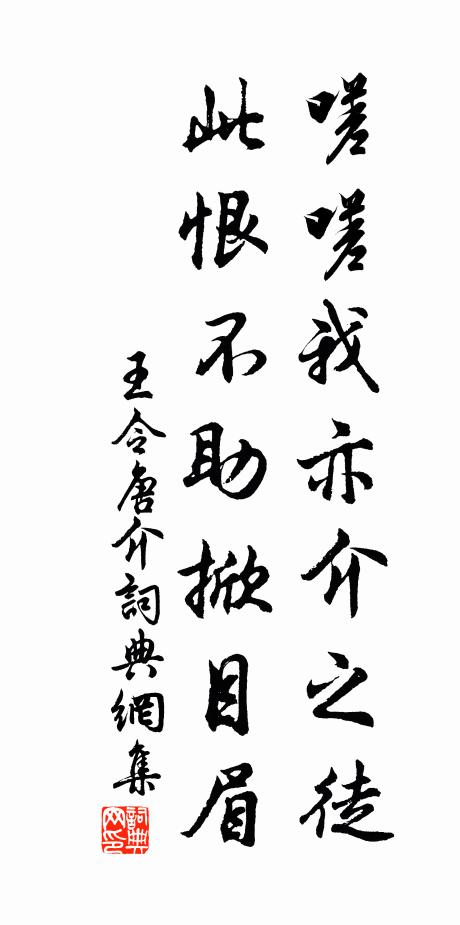 嗟嗟我亦介之徒
此恨不助掀目眉
王令唐介詞典網集
詞典网印